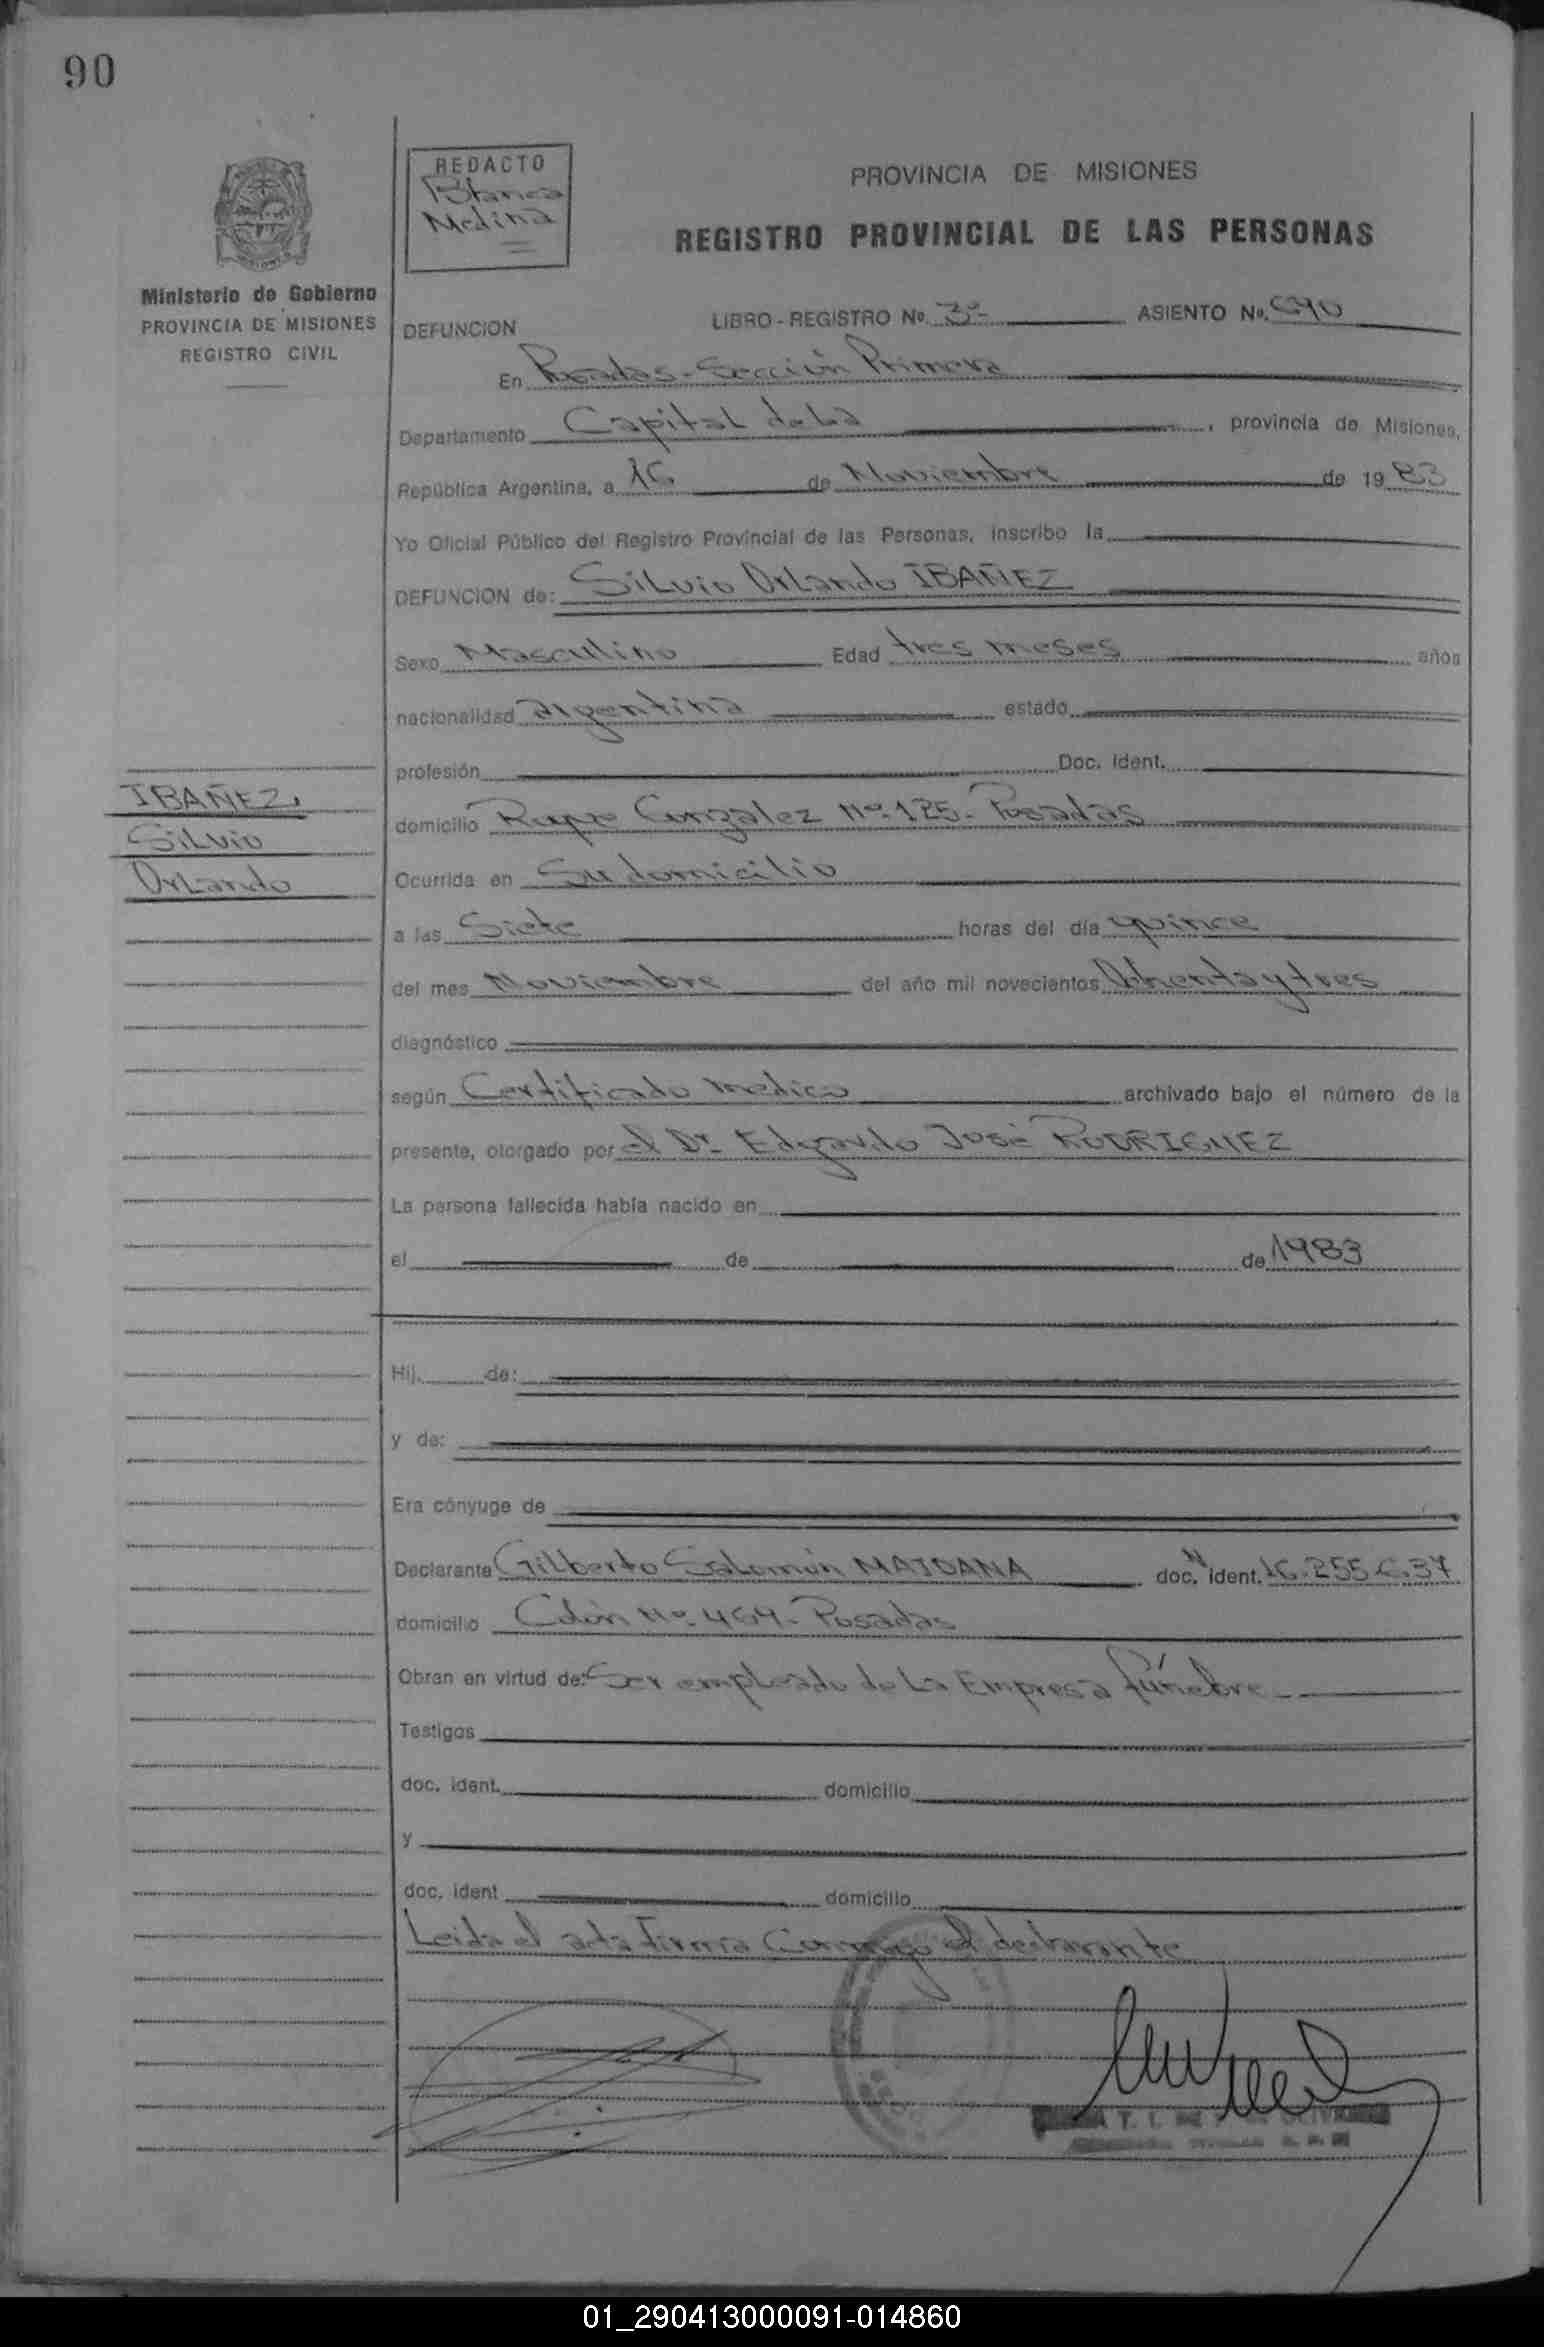 90
REDACTO
Blanca
Medina
PROVINCIA DE MISIONES
REGISTRO PROVINCIAL DE LAS PERSONAS
Ministerio de Gobierno
PROVINCIA DE MISIONES
REGISTRO CIVIL
DEFUNCION LIBRO - REGISTRO No. 3º ASIENTO No.
En Posadas - Sección Primera
Departamento Capital de La , provincia de Misiones,
República Argentina, a 16 de Noviembre de 19 83
Yo Oficial Público del Registro Provincial de las Personas, inscribo la
DEFUNCION de: Silvio Orlando IBAÑEZ
Sexo Masculino Edad tres meses años
nacionalidad argentina estado
profesión Doc. Ident.
IBAÑEZ,
Silvio
Orlando
domicilio Gonzalez Nº 125 - Posadas
Ocurrida en Su domicilio
a las Siete horas del día quince
del mes Noviembre del año mil novecientos Ochenta y tres
diagnóstico
según Certificado medico archivado bajo el número de la
presente, otorgado por el Dr. Edgardo José RODRIGUEZ
La persona fallecida había nacido en
el de de 1983
Hij. de:
y de:
Era cónyuge de
Declarante Gilberto Salomón MAIDANA doc. ident. 16.255.637
domicilio Colón Nº 464 - Posadas
Obran en virtud de: Ser empleado de La Empresa fúnebre
Testigos
doc. ident. domicilio
y
doc. ident domicilio
Leida el acta Firma Conmigo el declarante
01_290413000091-014860